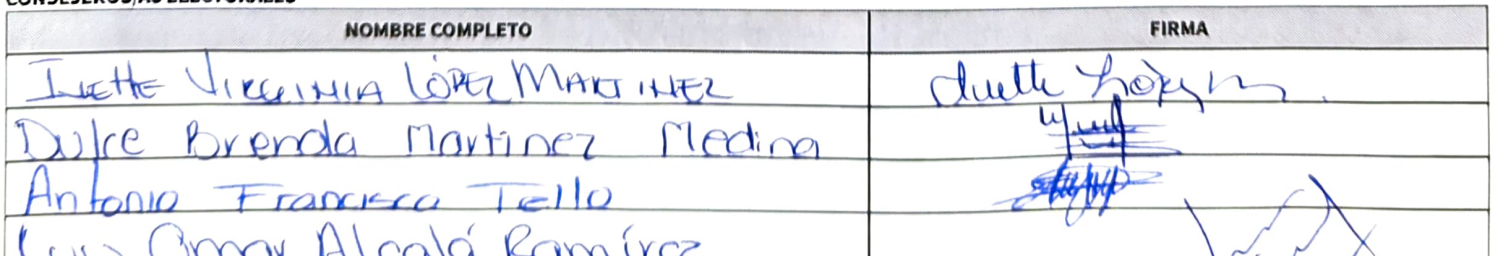 CONSEJEROS/AS ELECTORALES
NOMBRE COMPLETO FIRMA
IVETTE VIRGINIA LÓPEZ MARTINEZ Ivette López m.
Dulce Brenda Martinez Medina
Antonio Francisco Tello
Luis Omar Alcalá Ramírez